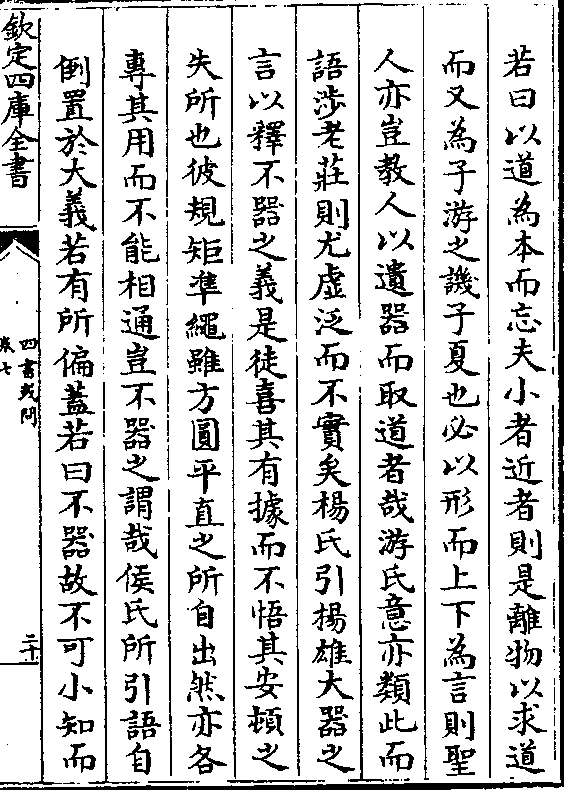 若曰以道為本而忘夫小者近者則是離物以求道
而又為子游之譏子夏也必以形而上下為言則聖
人亦豈教人以遺器而取道者哉游氏意亦類此而
語涉老莊則尤虛泛而不實矣楊氏引揚雄大器之
言以釋不器之義是徒喜其有據而不悟其安頓之
失所也彼規矩準繩雖方圓平直之所自出然亦各
專其用而不能相通豈不器之謂哉侯氏所引語自
倒置於大義若有所偏蓋若曰不器故不可小知而
欽定四庫全書
四書或問
卷七
二十